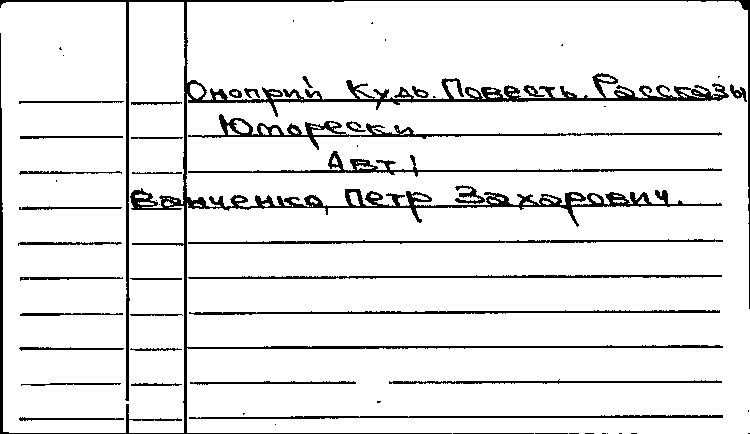 Оноприй Кудь. Повесть. Рассказы
Юморески.
Авт:
Ванченко, Петр Захарович.